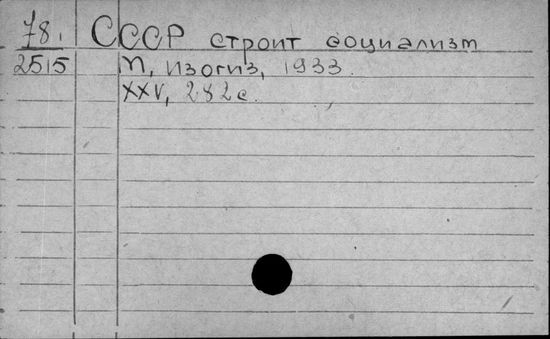 78. СССР строит социализм
2515 М, Изогиз, 1933.
XXV, 282 с.